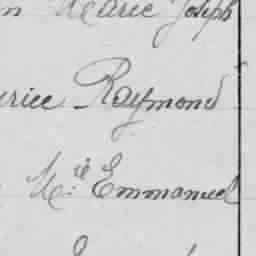 n Marie Joseph
urice Raymond
M.ie Emmanuel